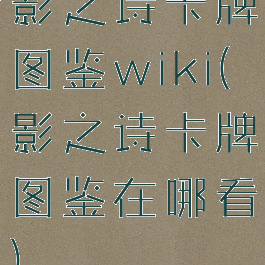 影之诗卡牌
图鉴wiki(
影之诗卡牌
图鉴在哪看
)